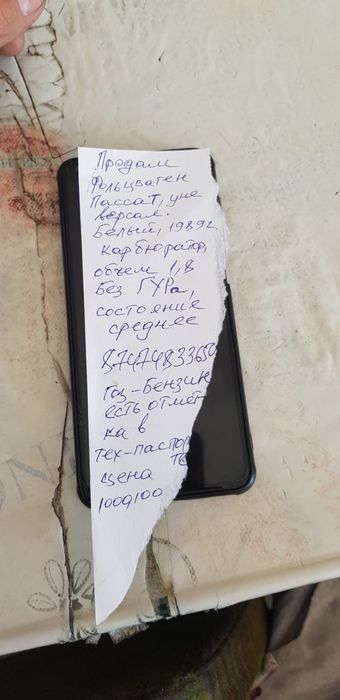 Продам
Фольцваген
Пассат, уне
версал.
Белый, 1989г.
карбюратор,
объем 1,8
Без ГУРа,
состояние
среднее
87474833650
Газ-Бензин
есть отмет
ка в
тех-паспор
те
цена